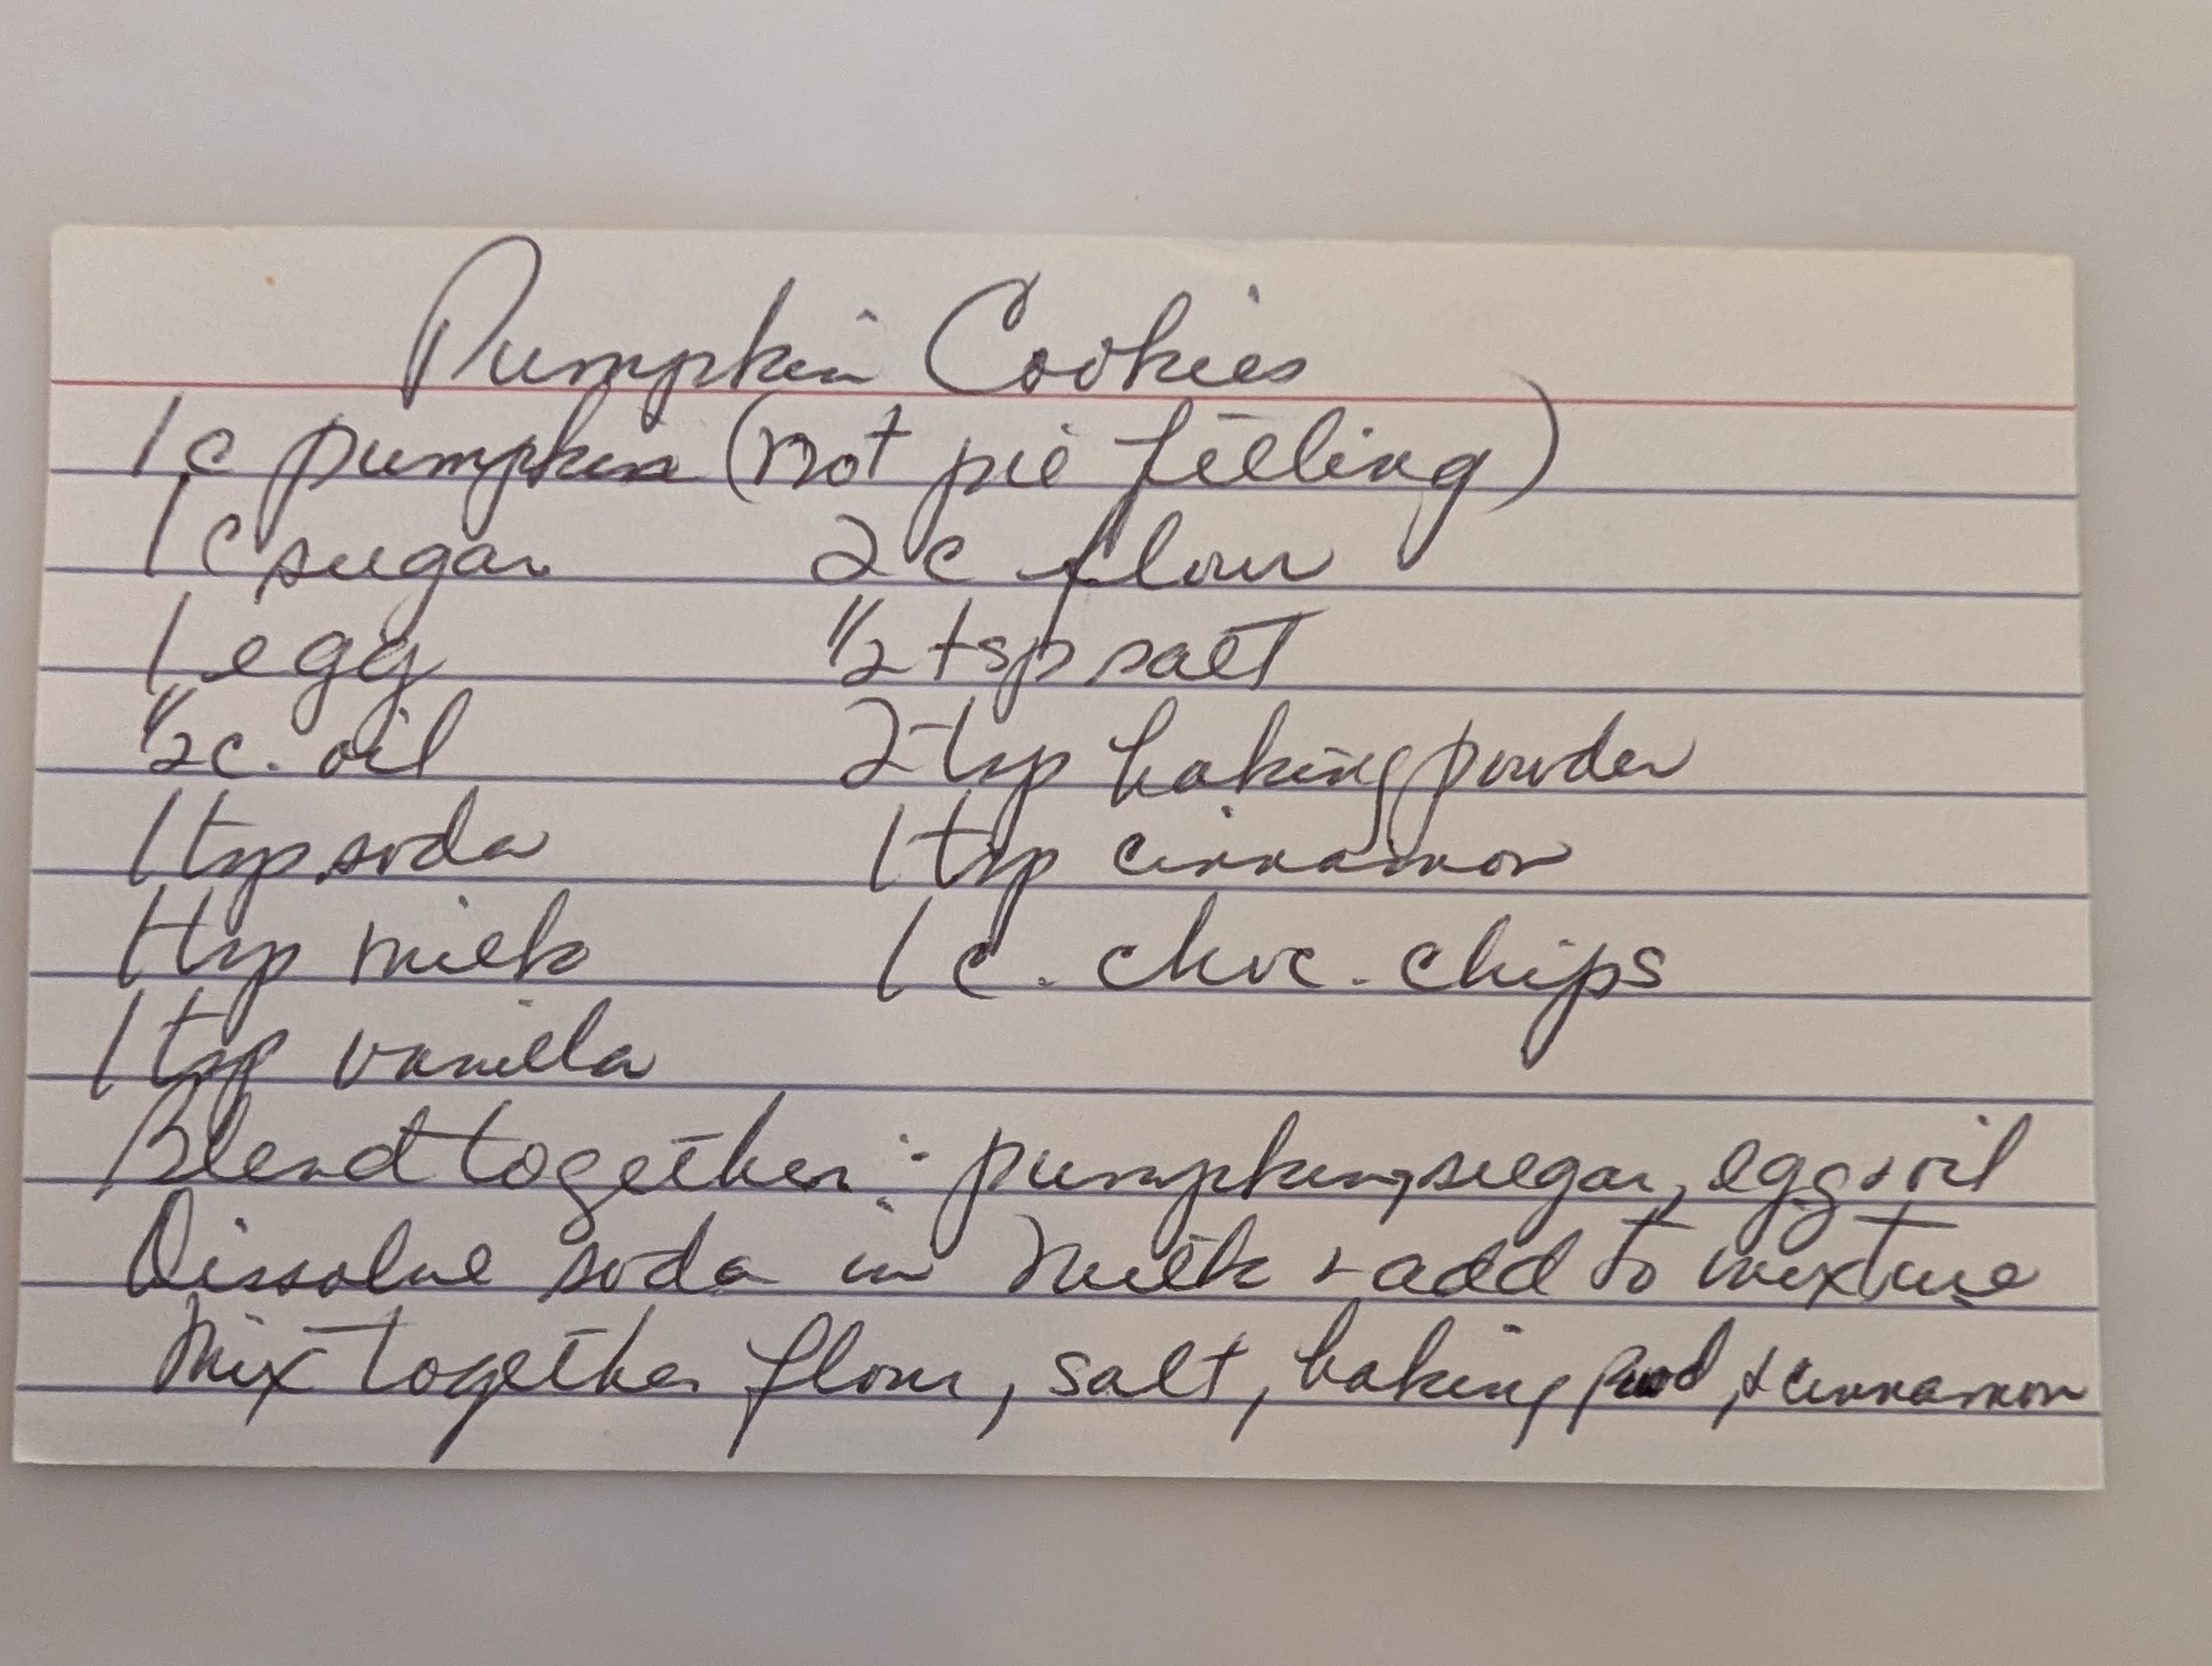 Pumpkin Cookies
1 c pumpkin (not pie filling)
1 c sugar 2 c flour
1 egg 1/2 tsp salt
1/2 c. oil 2 tsp baking powder
1 tsp soda 1 tsp cinnamon
1 tsp milk 1 c. choc. chips
1 tsp vanilla
Blend together: pumpkin, sugar, egg + oil
Dissolve soda in milk + add to mixture
Mix together flour, salt, baking powd, + cinnamon